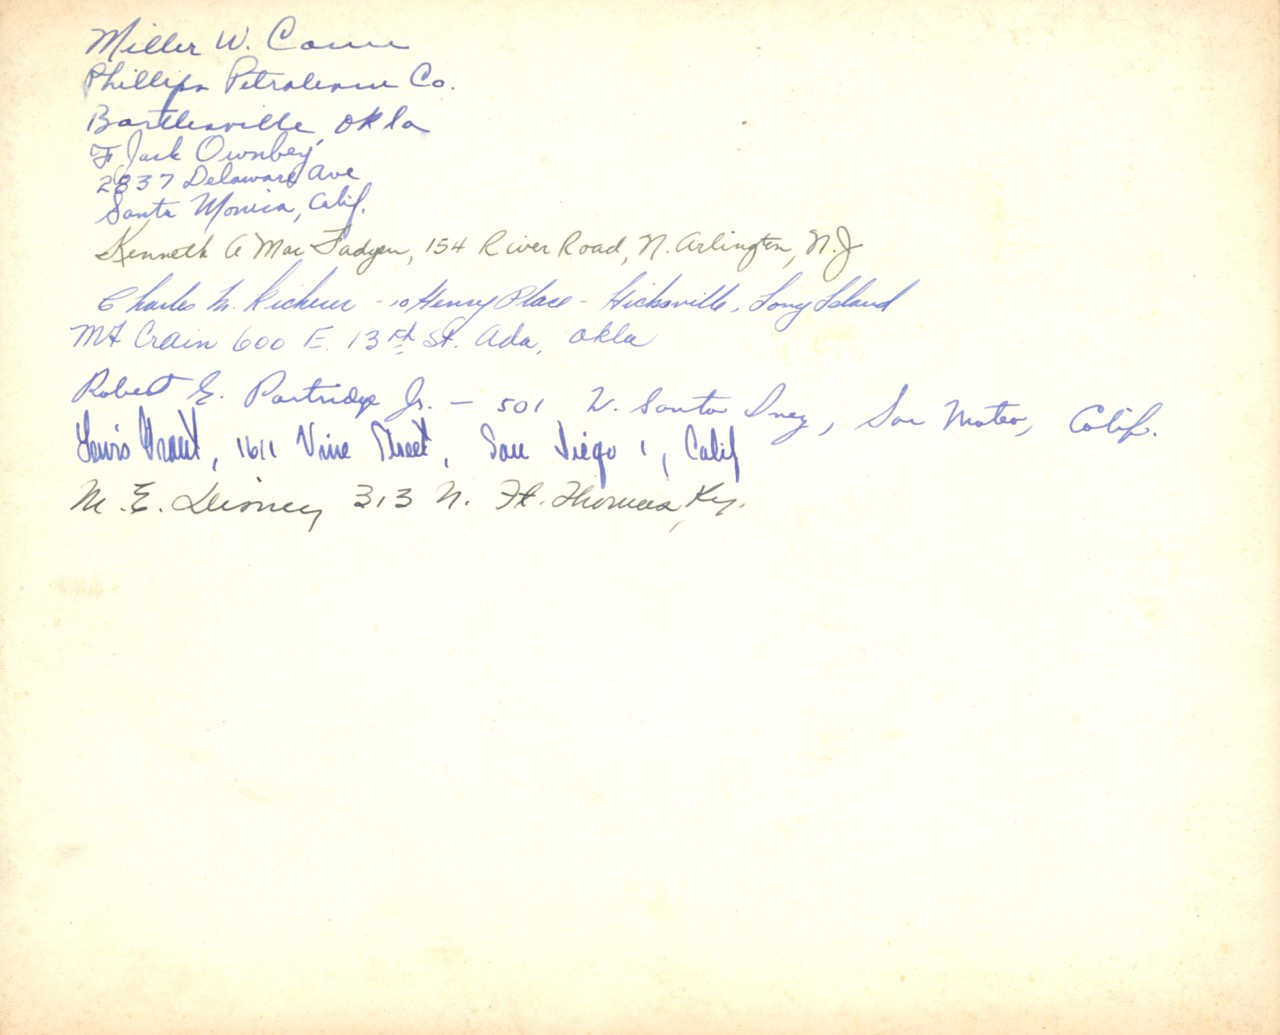 Miller W.
Phillips Petroleum Co.
Bartlesville, Okla
F Jack Ownbey
2837 Delaware Ave
Santa Monica, Calif.
Kenneth A MacFadyen, 154 River Road, N. Arlington, N.J
Charles M. - 10 Henry Place - Hicksville, Long Island
MF Crain 600 E. 13th St. Ada, Okla
Robert E. Partridge Jr. - 501 W. Santa Inez, San Mateo, Calif.
Lewis Grant, 1611 Vine Street, San Diego 1, Calif
M. E. Disney 313 N. Ft. Thomas, Ky.